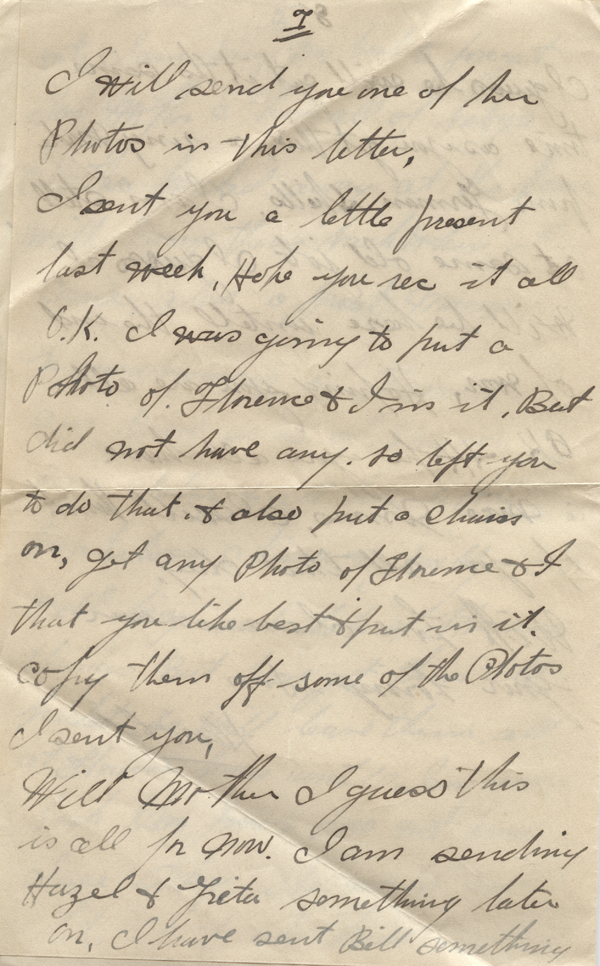 7
I will send you one of her
Photos in this letter,
I sent you a little present
last week, Hope you rec it all
O.K. I was going to put a
Photo of Florence & I in it, But
did not have any. so left you
to do that. & also put a chain
on, get any Photo of Florence & I
that you like best & put in it.
copy them off some of the Photos
I sent you,
Will Mother I guess this
is all for now. I am sending
Hazel & Greta something later
on, I have sent Bill something